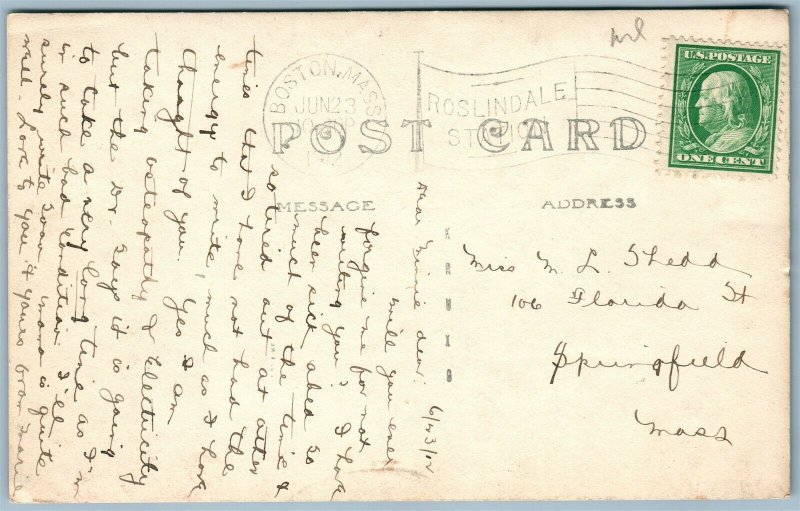 prl
BOSTON, MASS
JUN 23
ROSLINDALE
STATION
U.S. POSTAGE
ONE CENT
POST CARD
MESSAGE
ADDRESS
KRUXO
Miss M. L. Shedd
106 Florida St
Springfield
Mass
6/23/12
Dear Minnie dear:
Will you ever
forgive me for not
writing you? I have
been sick abed so
much of the time &
so tired out at other
times that I have not had the
energy to write, much as I have
thought of you. Yes I am
taking osteopathy & Electricity
but the Dr. says it is going
to take a very long time as I'm
in such bad condition. I'll
surely write soon. Mama is quite
well. Love to you & yours from Marie